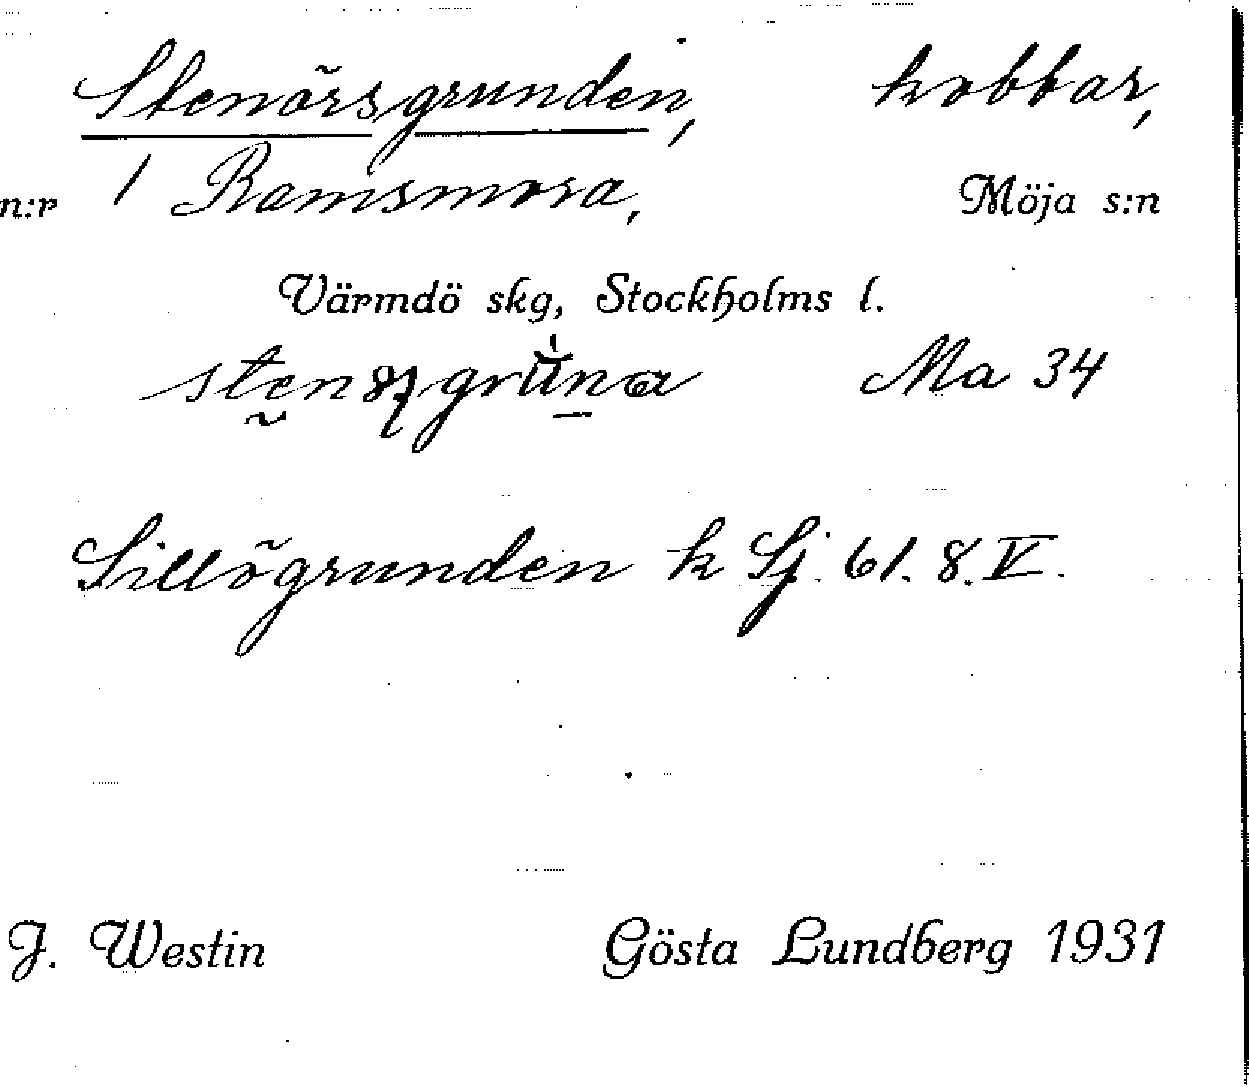 Stenörsgrunden, kobbar,
n:r 1 Ramsmora, Möja s:n
Värmdö skg, Stockholms l.
Ma 34
Sillögrunden k Sj. 61. 8. V.
J. Westin Gösta Lundberg 1931